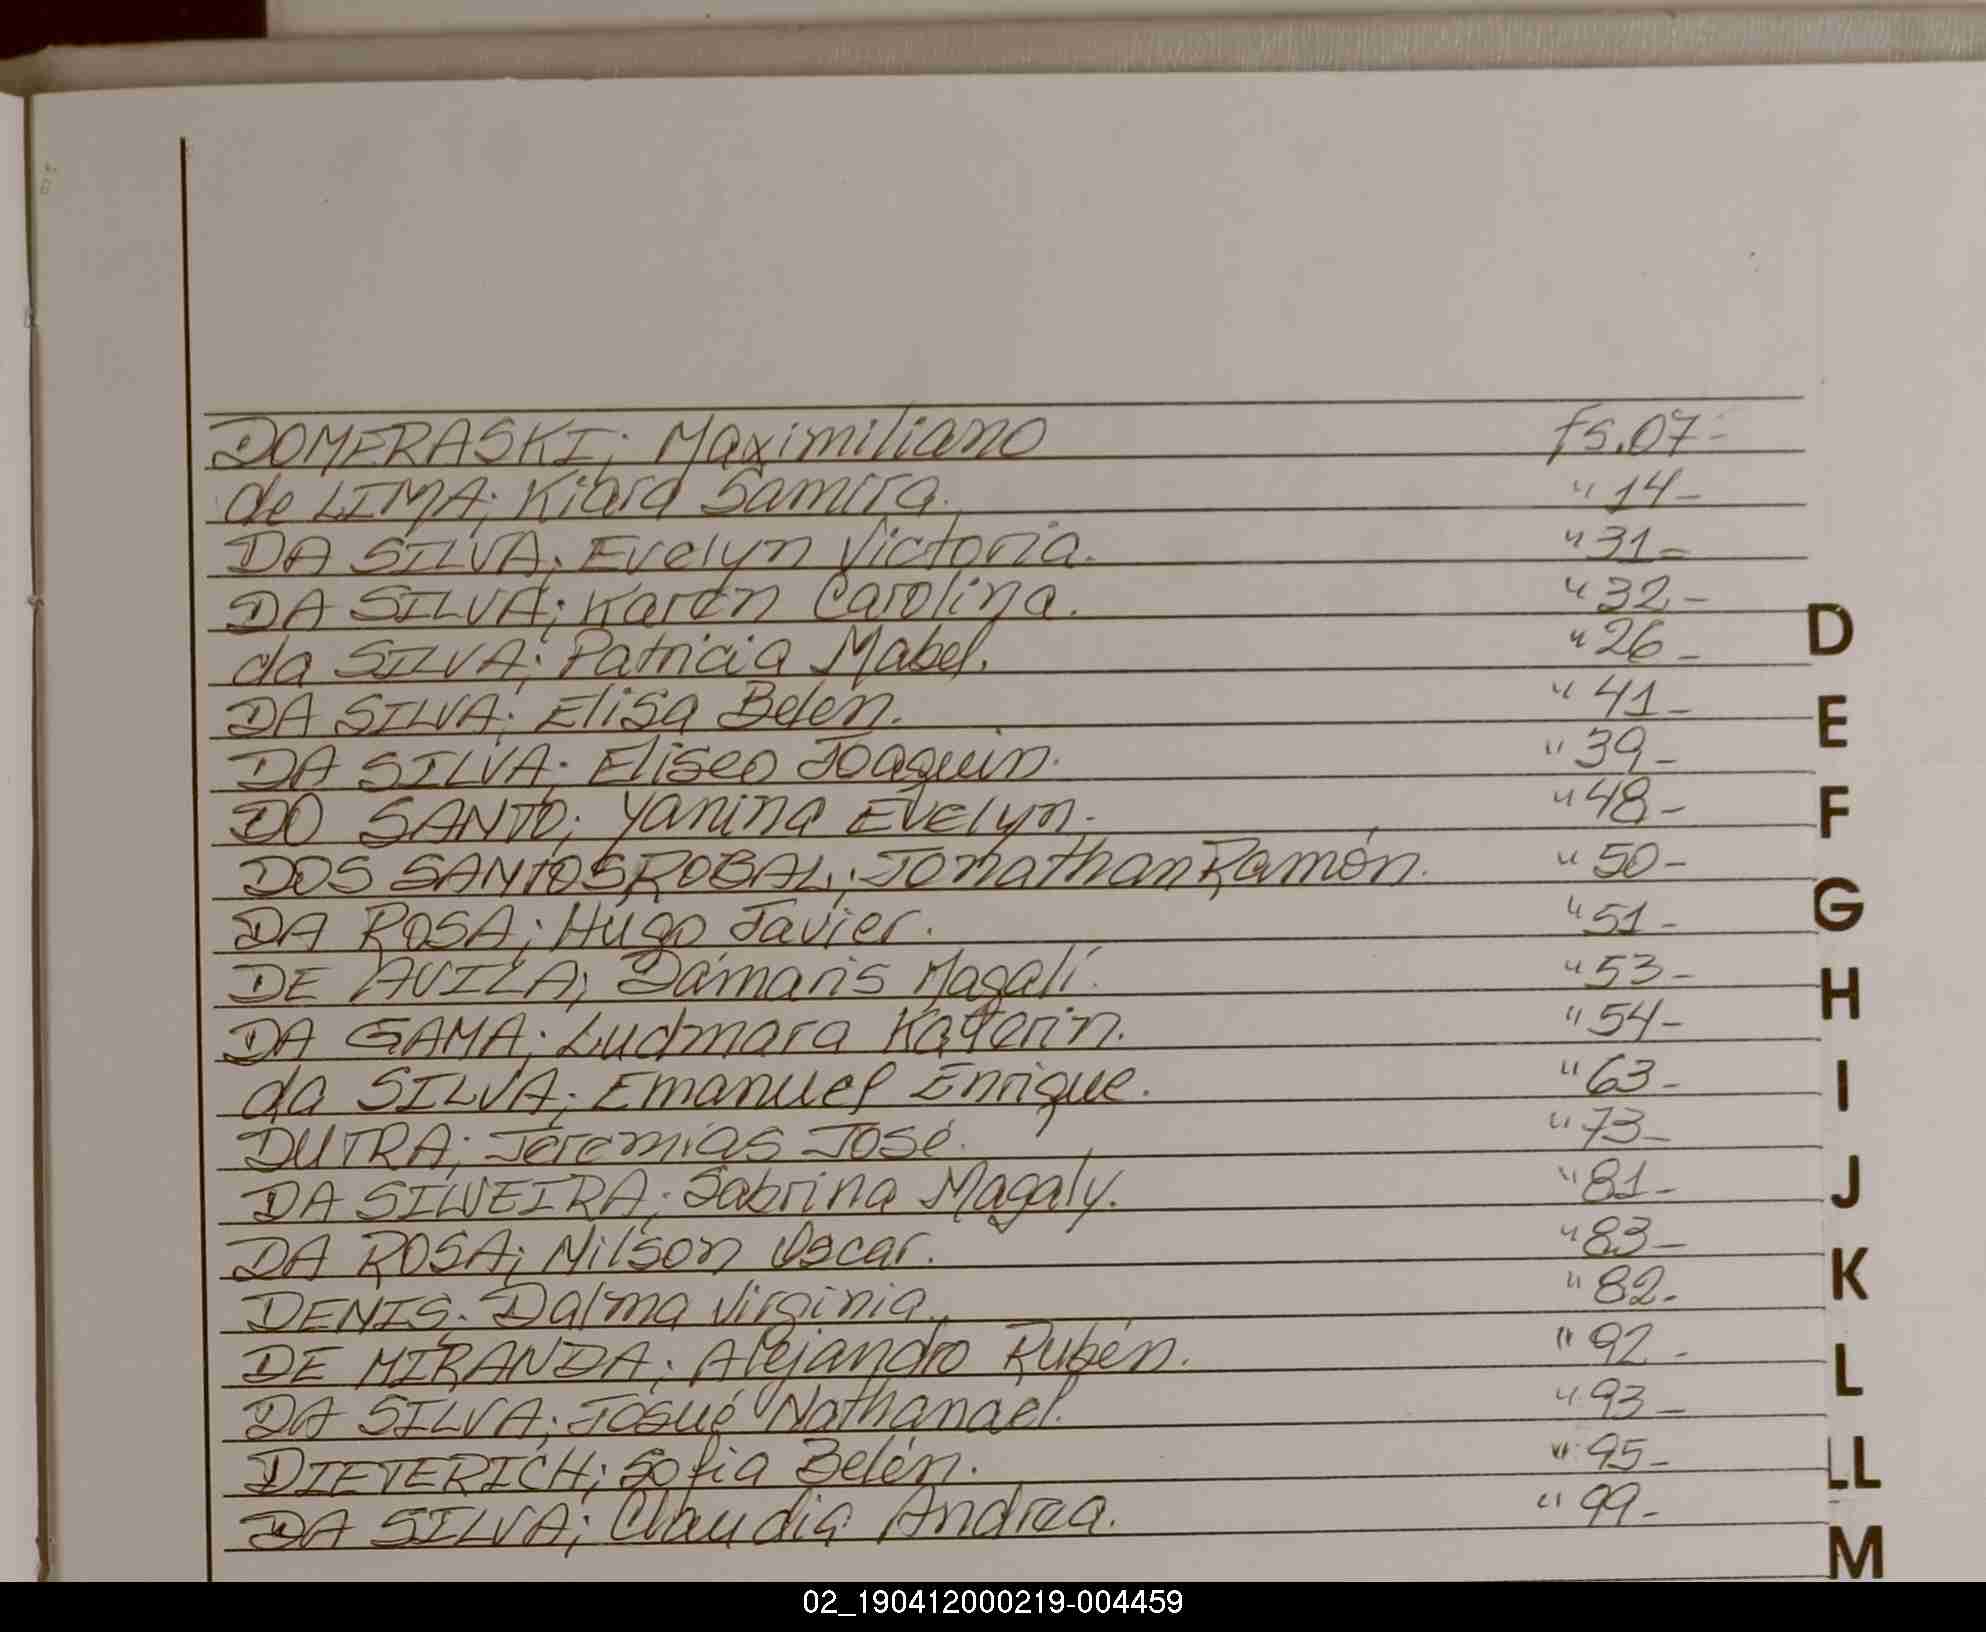 DOMERASKI; Maximiliano fs.07-
de LIMA; Kiara Samira. " 14-
DA SILVA; Evelyn Victoria. " 31-
DA SILVA; Karen Carolina. " 32-
da SILVA; Patricia Mabel. " 26-
DA SILVA; Elisa Belen. " 41-
DA SILVA; Eliseo Joaquin. " 39-
DO SANTO; Yanina Evelyn. " 48-
DOS SANTOS ROBAL; Jonathan Ramón. " 50-
DA ROSA; Hugo Javier. " 51-
DE AVILA; Dámaris Magalí. " 53-
DA GAMA; Ludmara Katterin. " 54-
da SILVA; Emanuel Enrique. " 63-
DUTRA; Jeremías José. " 73-
DA SILVEIRA; Sabrina Magaly. " 81-
DA ROSA; Nilson Oscar. " 83-
DENIS. Dalma Virginia. " 82.
DE MIRANDA; Alejandro Rubén. " 92-
DA SILVA; Josué Nathanael. " 93-
DIETERICH; Sofia Belén. " 95-
DA SILVA; Claudia Andrea. " 99-
D
E
F
G
H
I
J
K
L
LL
M
02_190412000219-004459